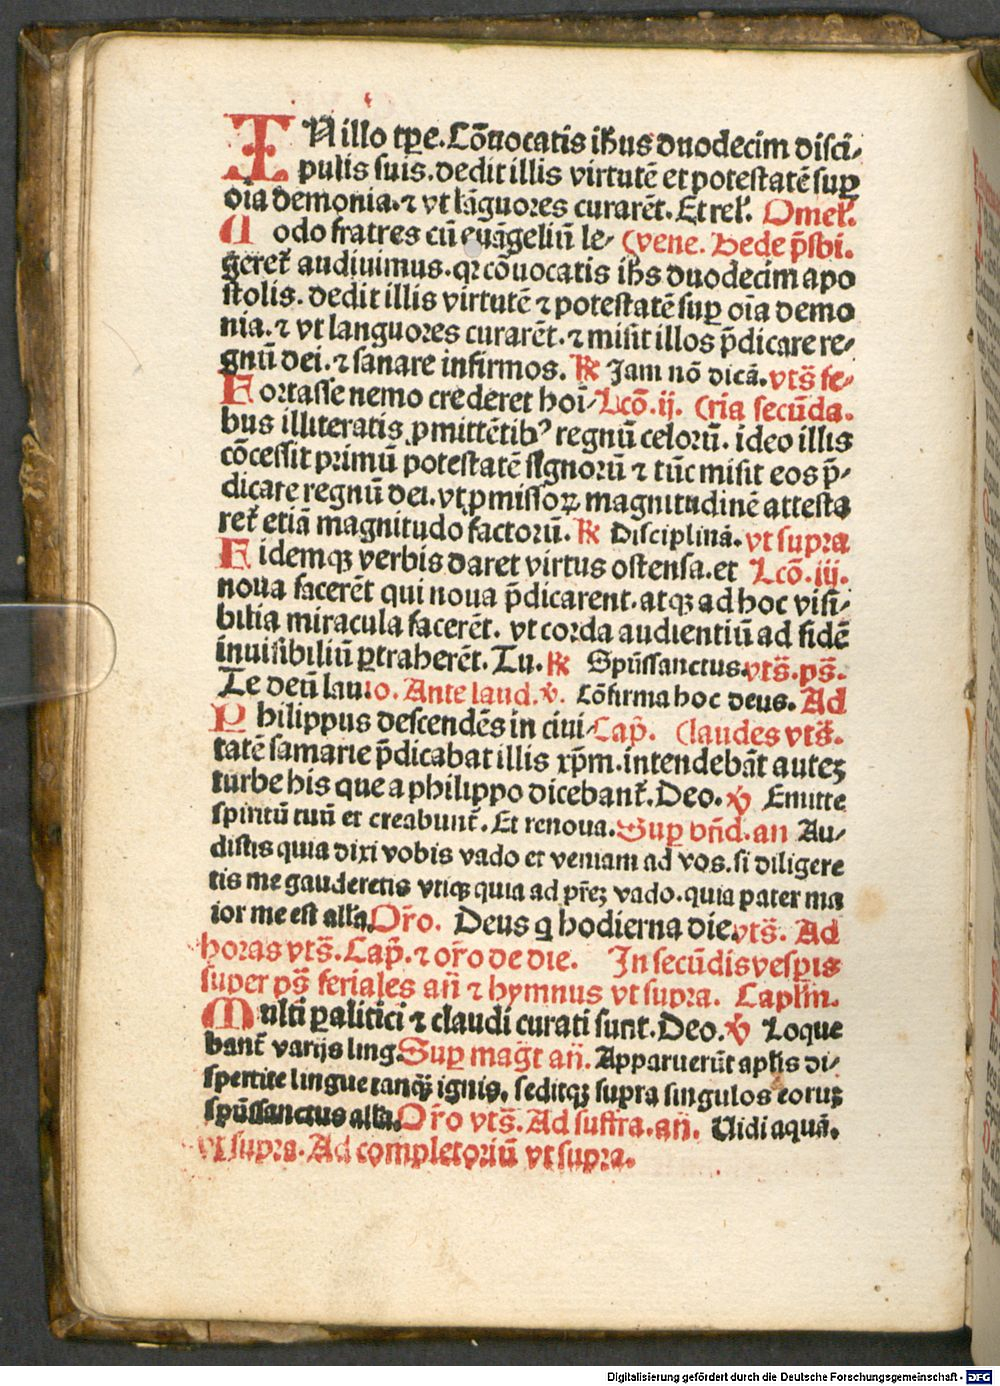 IN illo tꝑe. Cōuocatis ih̄us duodecim disci⸗
pulis suis. dedit illis virtutē et potestatē suꝑ
oīa demonia. ⁊ vt lāguores curarēt. Et rel̄. Omel̄.
Modo fratres cū euāgeliū le⸗ (vene. Bede p̄sbi.
geret̄ audiuimus. qꝛ cōuocatis ih̄s duodecim apo
stolis. dedit illis virtutē ⁊ potestatē suꝑ oīa demo
nia. ⁊ vt languores curarēt. ⁊ misit illos p̄dicare re⸗
gnū dei. ⁊ sanare infirmos. ℟ Jam nō dicā. vts̄ fe⸗
Fortasse nemo crederet hoī⸗ Lcō. ij. (ria secūda.
bus illiteratis ꝓmittētibꝰ regnū celorū. ideo illis
cōcessit primū potestatē signorū ⁊ tūc misit eos p̄⸗
dicare regnū dei. vt ꝓmissoꝝ magnitudinē attesta
ret̄ etiā magnitudo factorū. ℟ Disciplinā. vt supra
Fidemqꝫ verbis daret virtus ostensa. et Lcō. iij.
noua facerēt qui noua p̄dicarent. atqꝫ ad hoc visi⸗
bilia miracula facerēt. vt corda audientiū ad fidē
inuisibiliū ꝑtraherēt. Tu. ℟ Spūssanctus. vts̄. ps̄.
Te deū lauꝛo. Ante laud. ℣. Cōfirma hoc deus. Ad
Philippus descendēs in ciui⸗ Cap̄. (laudes vts̄.
tatē samarie p̄dicabat illis xp̄m. intendebāt auteꝫ
turbe his que a philippo dicebant̄. Deo. ℣ Emitte
spiritū tuū et creabunt̄. Et renoua. Suꝑ bn̄d. an Au⸗
distis quia dixi vobis vado et veniam ad vos. si diligere
tis me gauderetis vtiqꝫ quia ad pr̄eꝫ vado. quia pater ma
ior me est all̄a. Or̄o. Deus q hodierna die. vts̄. Ad
horas vts̄. Cap̄. ⁊ or̄o de die. In secūdis vesꝑis
super ps̄ feriales an̄ ⁊ hymnus vt supra. Capl̄m.
Multi ꝑalitici ⁊ claudi curati sunt. Deo. ℣ Loque
bant̄ varijs ling. Suꝑ magt̄ an̄. Apparuerūt apl̄is di⸗
spertite lingue tanqꝫ̄ ignis. seditqꝫ supra singulos eoruꝫ
spūssanctus all̄a. Or̄o vts̄. Ad suffra. an̄. Uidi aquā.
vt supra. Ad completoriū vt supra.
Digitalisierung gefördert durch die Deutsche Forschungsgemeinschaft - DFG